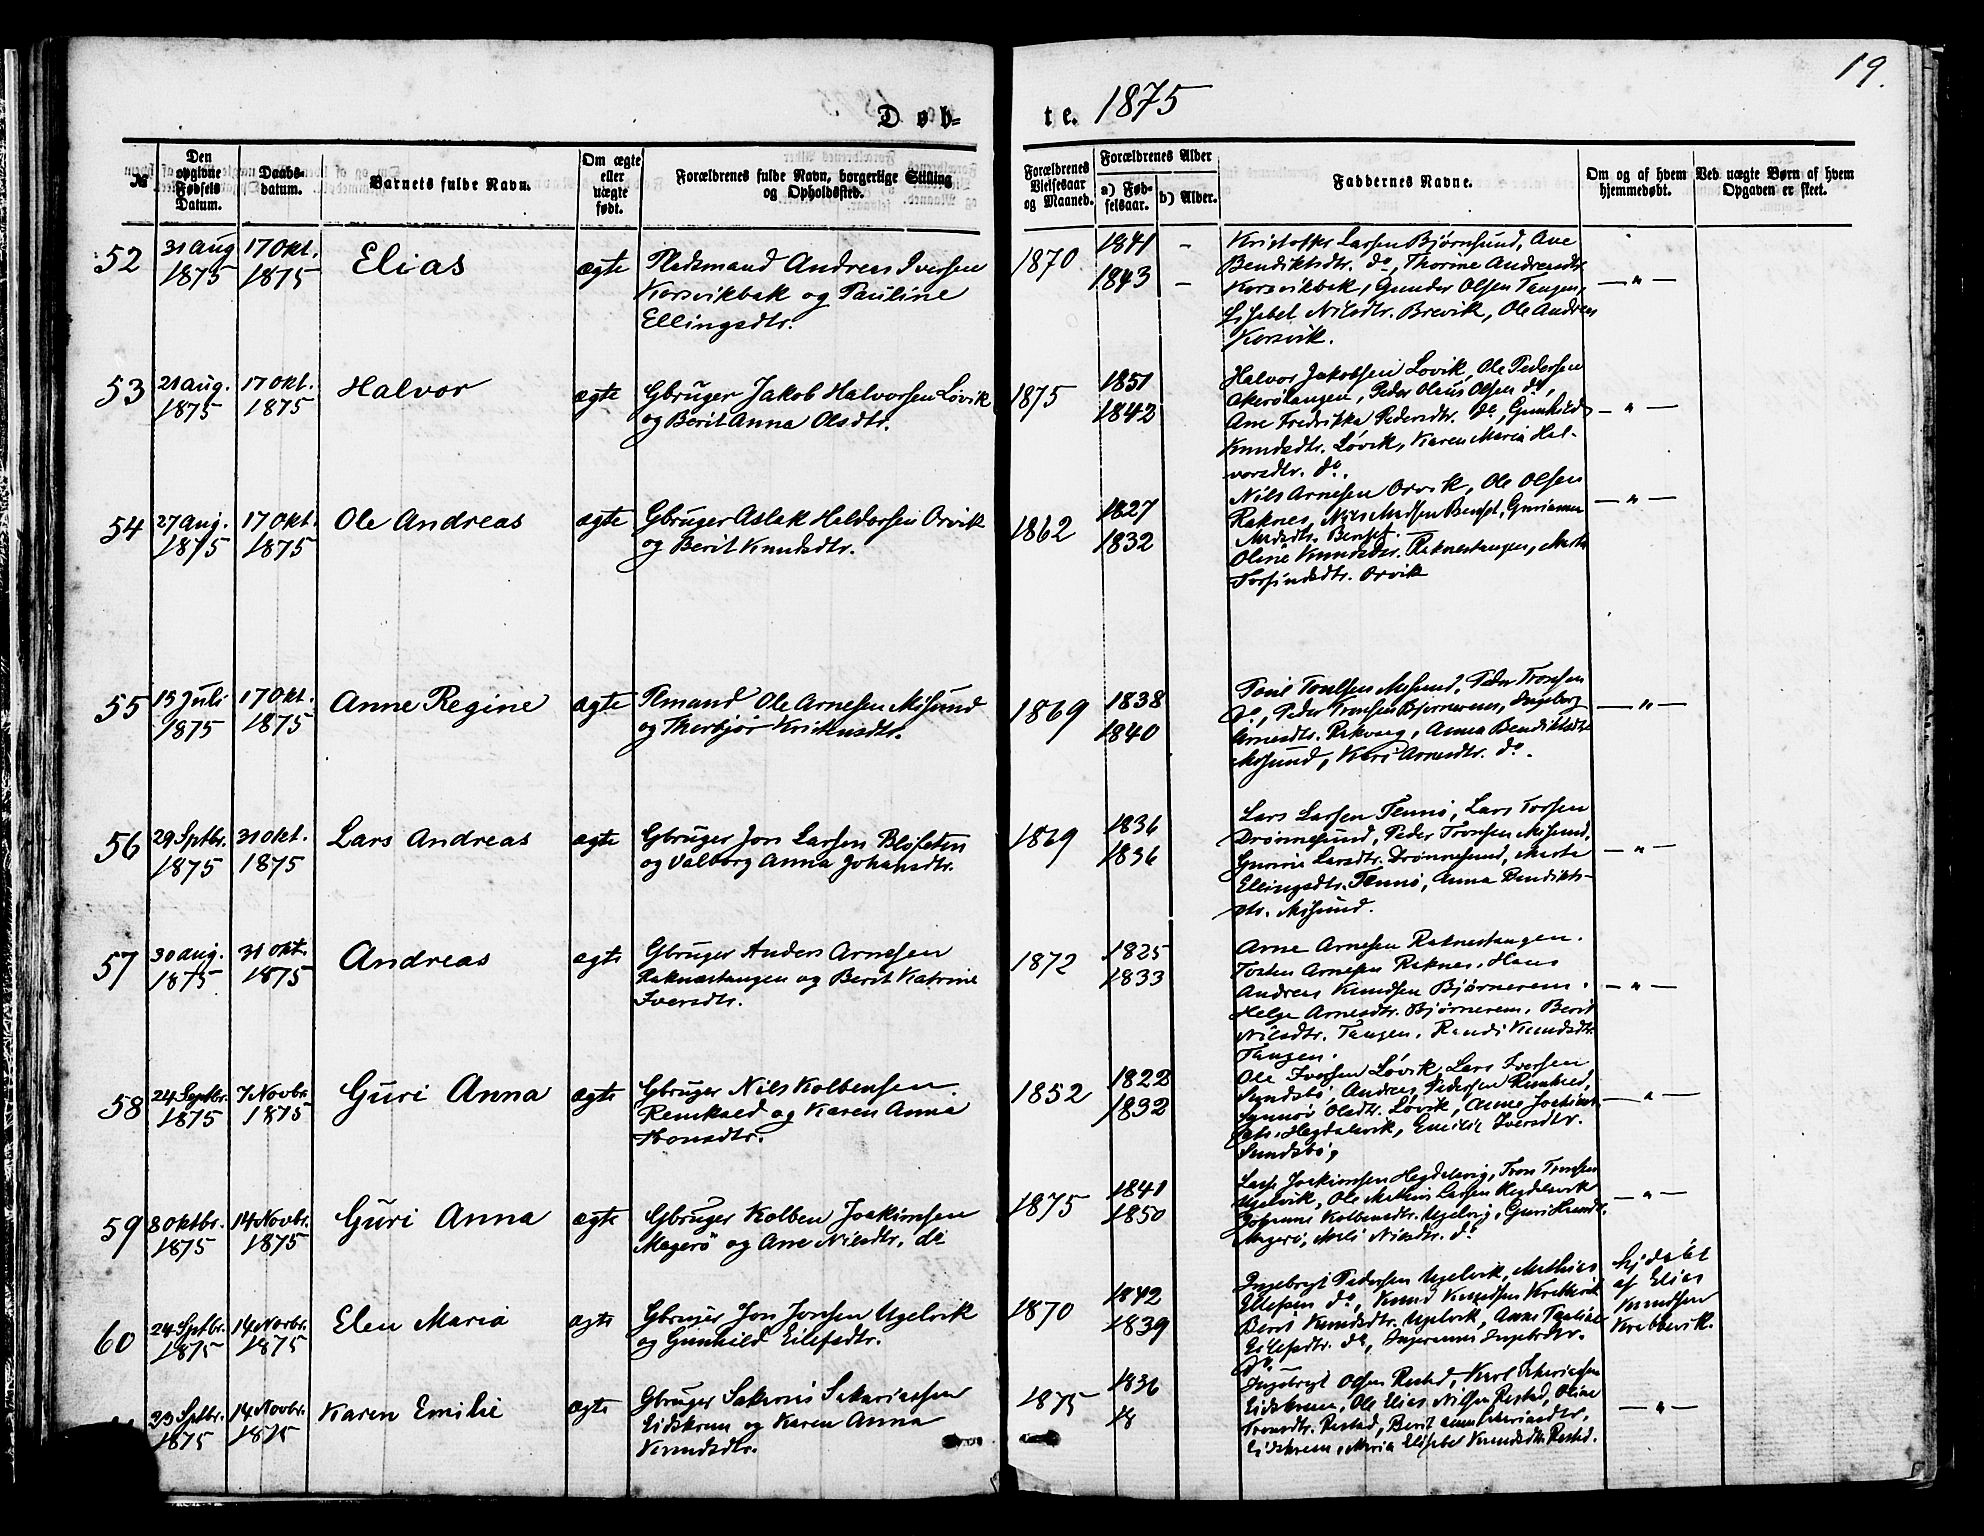 19.
Døb-
te. 1875
№
Den opgivne Fødsels Datum.
Daabs-datum.
Barnets fulde Navn.
Om ægte eller uægte født.
Forældrenes fulde Navn, borgerlige Stilling og Opholdssted.
Forældrenes Vielsesaar og Maaned.
Forældrenes Alder
a) Fødselsaar.
b) Alder.
Faddernes Navne.
Om og af hvem hjemmedøbt.
Ved uægte Børn af hvem Opgaven er skeet.
52
31 Aug 1875
17 Okt. 1875
Elias
ægte
Pladsmand Andreas Iversen
Korsvikbak og Pauline
Ellingsdtr.
1870
1841 -
1843 -
Kristoffer Larsen Bjørnsund, Ane
Bendiktsdtr. do, Thorine Andreasdtr.
Korsvikbak, Gunder Olsen Tangen,
Lisabet Nilsdtr. Brevik, Ole Andreas
Korsvik.
— " —
53
21 Aug. 1875
17 Okt. 1875
Halvor
ægte
Gbruger Jakob Halvorsen Løvik
og Berit Anna Olsdtr.
1875
1851
1842
Halvor Jakobsen Løvik, Ole Pedersen
Akerøtangen, Peder Olaus Olsen do,
Ane Fredrikka Pedersdtr. do, Gunhild
Knudsdtr. Løvik, Karen Maria Hal-
vorsdtr. do.
— " —
54
27 Aug. 1875
17 Okt. 1875
Ole Andreas
ægte
Gbruger Aslak Haldorsen Orvik
og Berit Knudsdtr.
1862
1827
1832
Nils Arnesen Orvik, Ole Olsen
Raknes, Nils Madsen Benset, Gurianna
Madsdtr. Benset.
Oline Knudsdtr. Raknestangen, Marta
Torfindsdtr. Orvik
— " —
55
15 Juli 1875
17 Okt. 1875
Anne Regine
ægte
Plmand Ole Arnesen Misund
og Thorbjør Kristensdtr.
1869
1838
1840
Poul Poulsen Misund, Peder Tronsen
do, Peder Tronsen Bjørnerem, Ingeborg
Arnesdtr. Rakvaag, Anna Bendiktsdtr
Misund, Kari Arnesdtr. do.
— " —
56
29 Septbr. 1875
31 Okt. 1875
Lars Andreas
ægte
Gbruger Jon Larsen Bliseten
og Valborg Anna Johansdtr.
1869
1836
1836
Lars Larsen Tennø, Lars Torsen
Drønnesund, Peder Tronsen Misund,
Guruia Larsdtr. Drønnesund, Marta
Ellingsdtr. Tennø, Anna Bendikts-
dtr. Misund.
— " —
57
30 Aug. 1875
31 Okt. 1875
Andreas
ægte
Gbruger Anders Arnesen
Raknestangen og Berit Katrine
Iversdtr.
1872
1825
1833
Arne Arnesen Raknestangen.
Tosten Arnesen Raknes, Hans
Andreas Knudsen Bjørnerem.
Helga Arnesdtr. Bjørnerem. Berit
Nilsdtr. Tangen. Randi Knudsdtr.
Tangen.
— " —
58
24 Septbr. 1875
7 Novbr. 1875
Guri Anna
ægte
Gbruger Nils Kolbensen
Remkald og Karen Anna
Tronsdtr.
1852
1822
1832
Ole Iversen Løvik, Lars Iversen
Sundsbø, Andreas Pedersen
Synnøv Olsdtr. Løvik, Anne
Hegdalsvik, Emilie Iversdtr.
Sundsbø,
— " —
59
8 Oktbr. 1875
14 Novbr. 1875
Guri Anna
ægte
Gbruger Kolben Joakimsen
Magerø og Ane Nilsdtr. do
1875
1841
1850
Lars Joakimsen Hegdalsvig, Tron Tronsen
Ugelvik, Ole Mathias Larsen Hegdalsvik
Johanna Kolbensdtr. Ugelvig, Guri
Magerø, Nilsdtr. do
— " —
60
24 Septbr. 1875
14 Novbr. 1875
Elen Maria
ægte
Gbruger Jon Jonsen Ugelvik
og Gunhild Eilefsdtr.
1870
1842
1839
Ingebrigt Pedersen Ugelvik, Mathias
Ellefsen do, Knud Knudsen Krakevik
Berit Knudsdtr. Ugelvik, Anne Pauline
Eilefsdtr. do, Ingeranna Ingebrdtr.
do
Hjdøbt
af Elias
Knudsen
Krabbevik.
23 Septbr. 1875
14 Novbr. 1875
Karen Emilie
ægte
Gbruger Sakarias Sakariassen
Eidskrem og Karen Anna
Knudsdtr.
1875
1836
18
Ingebrigt Olsen Restad, Karl Sakariassen
Eidskrem, Ole Elias Nilsen Restad, Oline
Tronsdtr. Restad, Berit Anna Sakariasdtr.
Eidskrem, Maria Elisabet Knudsdtr. Restad.
— " —